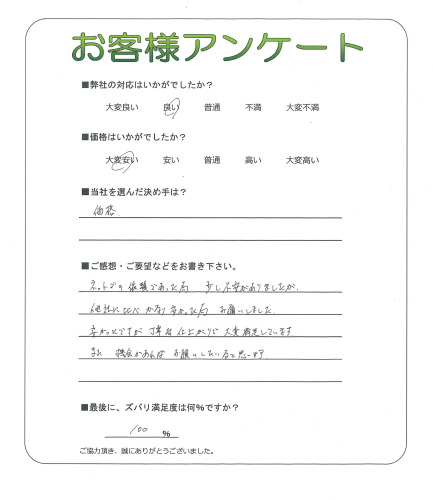 お客様アンケート
■弊社の対応はいかがでしたか？
大変良い 良い 普通 不満 大変不満
■価格はいかがでしたか？
大変安い 安い 普通 高い 大変高い
■当社を選んだ決め手は？
価格.
■ご感想・ご要望などをお書き下さい。
ネットでの依頼であった為 少し不安がありましたが、
他社に比べ かなり安かった為 お願いしました.
安かったですが 丁寧な仕上がりで 大変満足しています.
また 機会があれば お願いしたいなと思います.
■最後に、ズバリ満足度は何％ですか？
100 ％
ご協力頂き、誠にありがとうございました。